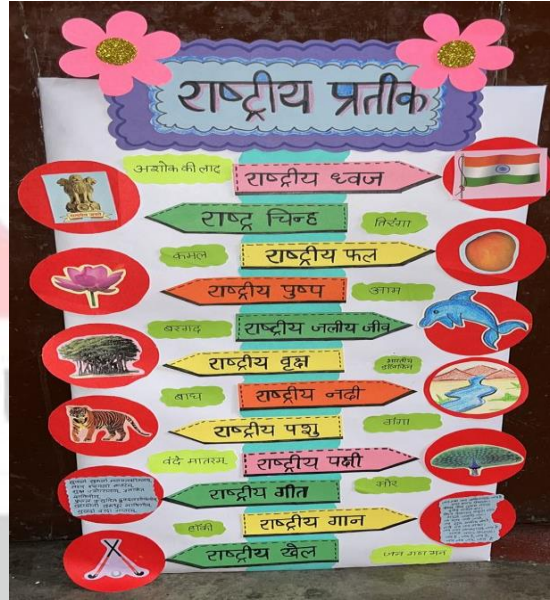 राष्ट्रीय प्रतीक
अशोक की लाट
राष्ट्रीय ध्वज
राष्ट्र चिन्ह
तिरंगा
कमल
राष्ट्रीय फल
राष्ट्रीय पुष्प
आम
बरगद
राष्ट्रीय जलीय जीव
राष्ट्रीय वृक्ष
भारतीय डॉल्फिन
बाघ
राष्ट्रीय नदी
राष्ट्रीय पशु
गंगा
वंदे मातरम्
राष्ट्रीय पक्षी
राष्ट्रीय गीत
मोर
हॉकी
राष्ट्रीय गान
राष्ट्रीय खेल
जन गण मन